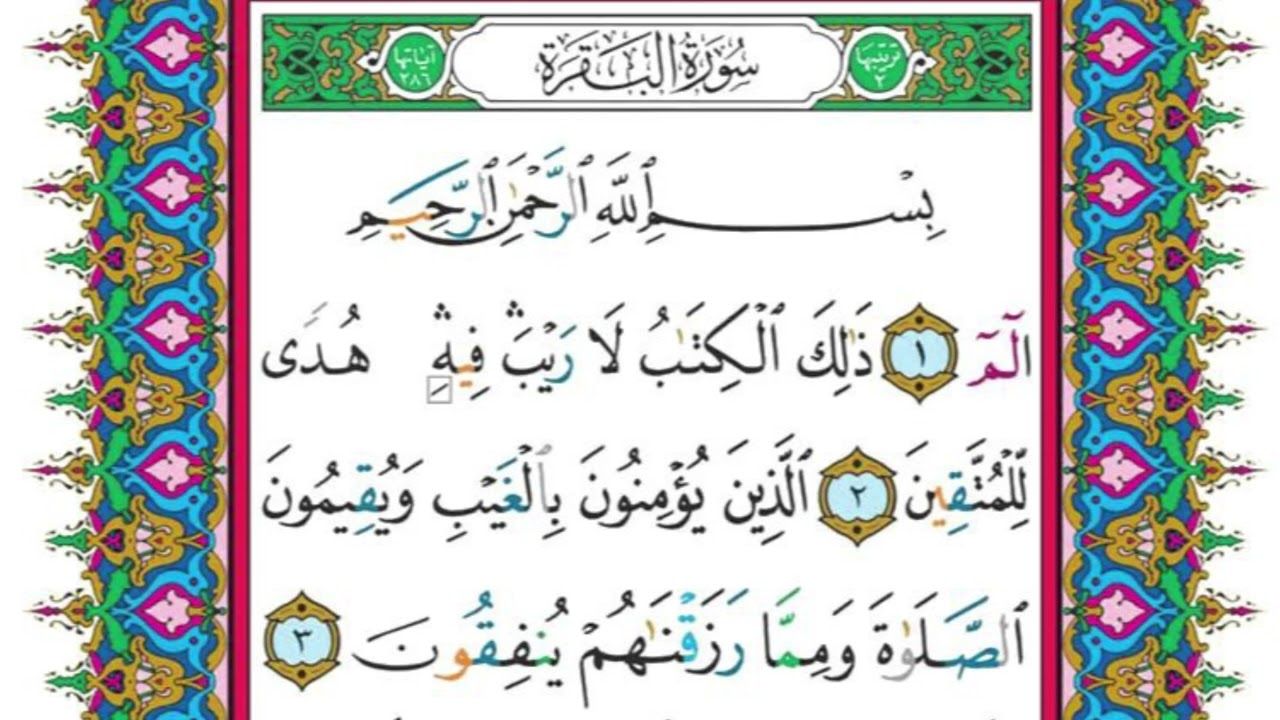 ترتيبها ٢ سُورَةُ البَقَرَةِ آياتها ٢٨٦
بِسْمِ ٱللَّهِ ٱلرَّحْمَٰنِ ٱلرَّحِيمِ
الٓمٓ ١ ذَٰلِكَ ٱلْكِتَٰبُ لَا رَيْبَ ۛ فِيهِ ۛ هُدًى
لِّلْمُتَّقِينَ ٢ ٱلَّذِينَ يُؤْمِنُونَ بِٱلْغَيْبِ وَيُقِيمُونَ
ٱلصَّلَوٰةَ وَمِمَّا رَزَقْنَٰهُمْ يُنفِقُونَ ٣